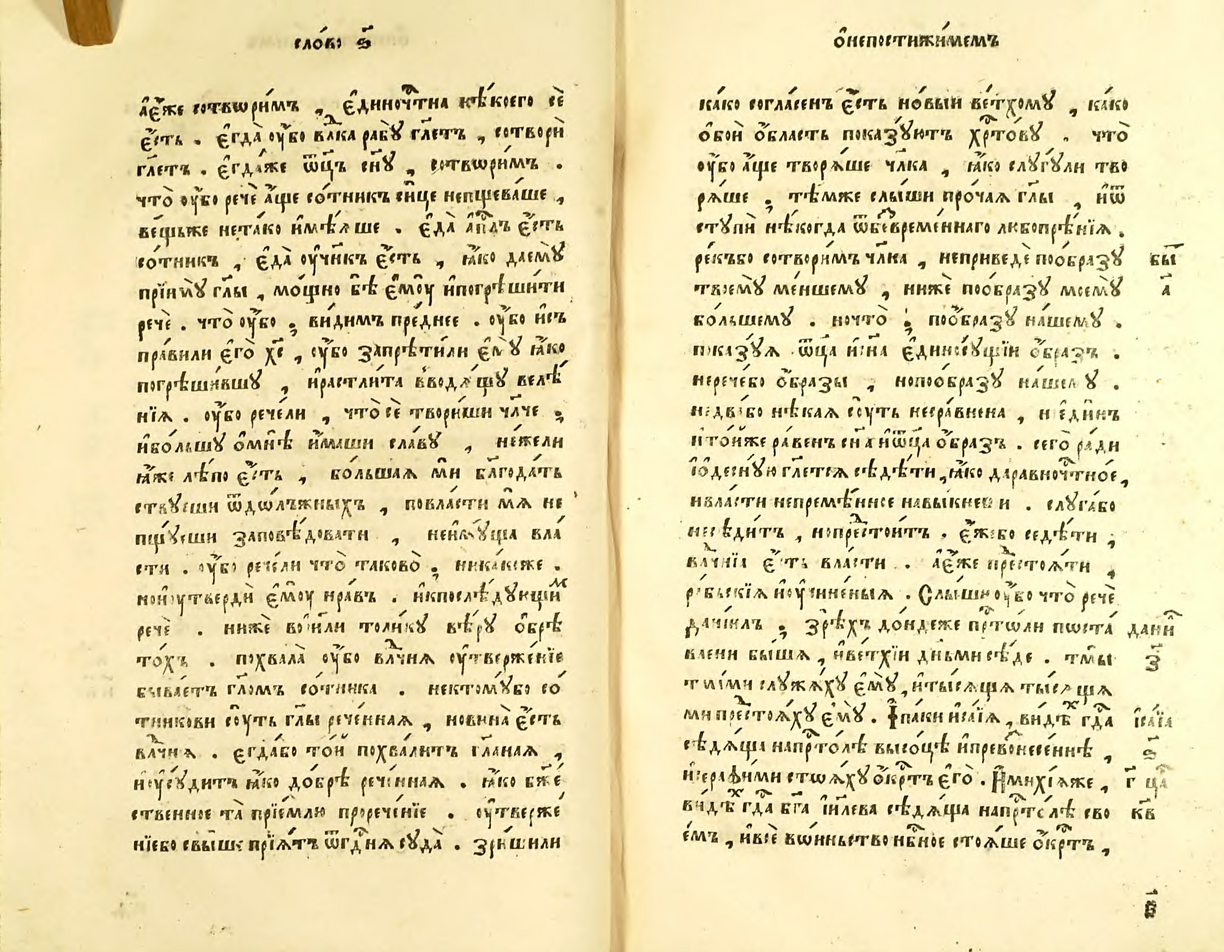 сло́во ѕ҃
а҆є́же сотвори́мъ , є҆диночⷭ҇тна нѣ́коего сѐ
є҆́сть . є҆гда̀ ᲂу҆́бо влⷣка рабꙋ̀ гл҃етъ , сотворѝ
гл҃етъ . є҆гда́же ѿц҃ъ сн҃ꙋ , сотвѡри́мъ .
что̀ ᲂу҆́бо речѐ а҆́ще со́тникъ си́це непщева́ше ,
ве́щьже нета́ко и҆мѣ́ѧше . є҆да̀ а҆пⷭ҇лъ є҆́сть
со́тникъ , є҆да̀ ᲂу҆чн҃къ є҆́сть , ꙗ҆́ко дае́мꙋ
прїи́мꙋ гл҃ы , мо́щно бѣ̀ є҆мᲂу̀ и҆погрѣши́ти
речѐ . что̀ ᲂу҆́бо ; ви́димъ пре́днее . ᲂу҆́бо и҆съ
пра́вили є҆го̀ хс҃ , ᲂу҆́бо запрѣти́ли є҆мꙋ̀ ꙗ҆́ко
погрѣши́вшꙋ , и҆растлѣ́нта вводѧ́щꙋ велѣ́
нїѧ . ᲂу҆́бо рече́ли , что̀ сѐ твори́ши чл҃че ;
и҆бо́льшꙋ ѡ҆мнѣ̀ и҆́маши сла́вꙋ , не́жели
ꙗ҆́же лѣ́по є҆́сть , бо́льшаѧ мѝ благода́ть
ствꙋеши ѿдѡлъжныхъ , повласти мѧ̀ не
пщꙋ́еши заповѣ́довати , неи҆мꙋ́ща вла́
сти . ᲂу҆́бо рече́ли что̀ таково̀ ; ника́коже .
нои҆ᲂутвердѝ є҆мᲂу̀ нра́въ . и҆кпослѣ́дꙋющимъ
речѐ . ни́же во і҆и҃ли толи́кꙋ вѣ́рꙋ ѡ҆брѣ
то́хъ . похвала̀ ᲂу҆́бо влⷣчнѧ ᲂу҆твержде́нїе
быва́етъ гл҃омъ со́тника . нектомꙋ́бо со́
тникови сᲂу́ть гл҃ы рече́ннаѧ , новинѐ є҆́сть
влⷣчнѧ . є҆гда́бо то́й похва́литъ гл҃анаѧ ,
и҆ѡсꙋ́дитъ ꙗ҆́ко до́брѣ рече́ннаѧ . ꙗ҆́ко бж҃е
ственное та̀ прїе́млю прорече́нїе . ᲂу҆тверже
нїебо свы́ше прїѧ́тъ ѿгⷭ҇днѧ сꙋда̀ . зри́шили
ѡ҆непостижи́мемъ
ка́ко согла́сенъ є҆́сть но́вый ве́тхомꙋ , ка́ко
ѻ҆боѝ ѻ҆́бласть пока́зꙋютъ хрⷭ҇то́вꙋ . что̀
ᲂу҆́бо а҆́ще творѧ́ше чл҃ка , ꙗ҆́ко слꙋгꙋ́ли тво
рѧ́ше ; тѣ́мже слы́ши про́чаѧ гл҃ы , и҆ѿ
стꙋпѝ нѣ́когда ѿбезвре́меннаго любопрѣ́нїѧ .
ре́къбо сотвори́мъ чл҃ка , неприведѐ поѻ҆́бразꙋ
бы҃
твоемꙋ̀ ме́ншемꙋ , ни́же поѻ҆́бразꙋ моемꙋ̀
а҃
бо́льшемꙋ . ночто̀ ; поѻ҆́бразꙋ на́шемꙋ .
пока́зꙋѧ ѿц҃а и҆сн҃а є҆диносꙋ́щїй ѻ҆́бразъ .
нерече́бо ѻ҆́бразы , нопоѻ҆́бразꙋ на́шемꙋ .
недвѣ́бо нѣ́каѧ сꙋть несра́внена , н є҆ди́нъ
и҆то́йже ра́венъ сн҃а и҆ѿц҃а ѻ҆́бразъ . сего̀ ра́ди
ѡ҆деснꙋ́ю гл҃етсѧ сѣдѣ́ти , ꙗ҆́ко даравночⷭ҇тное ,
и҆вла́сти непремѣ́нное навы́кнеши . слꙋга́бо
несѣди́тъ , нопрⷣестои́тъ . є҆́жебо седѣ́ти ;
влⷣчнїѧ є҆́сть вла́сти . а҆є́же прⷣестоѧ́ти ,
ра́бьскїѧ и҆ᲂучине́ныѧ . Слы́ши ᲂу҆́бо что̀ речѐ
данїи́лъ ; зрѣ́хъ до́ндеже прⷭ҇толи поста́
дани҃
влени бы́шѧ , и҆ве́тхїи дньмѝ сѣ́де . тмы̀
з҃
тмами слꙋжа́хꙋ є҆мꙋ̀ , и҆ты́сѧща ты́сѧща
ми прⷣестоѧ́хꙋ є҆мꙋ̀ . І҆ па́ки и҆са́їѧ , ви́дѣхъ гдⷭ҇а
і҆са́їа
сѣдѧ́ща напрⷭ҇то́лѣ высо́цѣ и҆превознесе́ннѣ ,
ѕ҃
и҆серафи́ми стоѧ́хꙋ ѡ҆́крⷭ҇тъ є҆го̀ . И҆михі́ѧже ,
г҃ ца
ви́дѣхъ гдⷭ҇а бг҃а і҆и҃лева сѣдѧ́ща напрⷭ҇то́лѣ сво
кв҃
е́мъ , и҆всѐ вѡ́иньство нб҃ное стоѧ́ше ѡ҆́крⷭ҇тъ ,